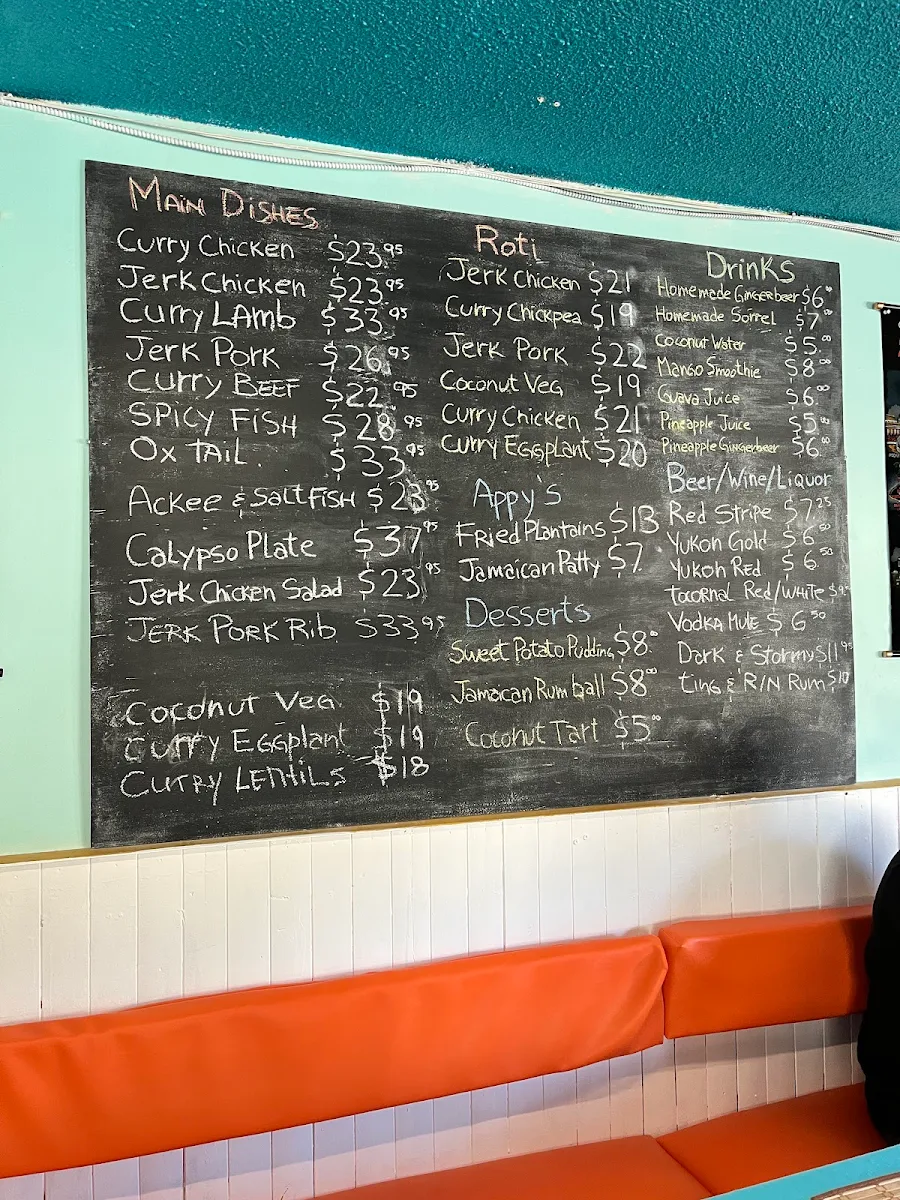 MAIN DISHES
Curry Chicken $23.95
Jerk Chicken $23.95
Curry LAmb $33.95
Jerk Pork $26.95
Curry BEEF $22.95
SPICY FISH $28.95
Ox TAIL. $33.95
Ackee & Salt FISH $23.95
Calypso Plate $37.95
Jerk Chicken Salad $23.95
JERK PORK RIB $33.95
Coconut Veg. $19
Curry Eggplant $19
Curry LENTILS $18
Roti
Jerk Chicken $21
Curry Chickpea $19
Jerk Pork $22
Coconut Veg $19
Curry Chicken $21
Curry Eggplant $20
Appy's
FRied Plantains $13
Jamaican Patty $7
Desserts
Sweet Potato Pudding $8.00
Jamaican Rum ball $8.00
Coconut Tart $5.00
DrinKs
Homemade Gingerbeer $6.00
Homemade Sorrel $7.00
Coconut Water $5.00
Mango Smoothie $8.00
Guava Juice $6.00
Pineapple Juice $5.00
Pineapple Gingerbeer $6.00
Beer/Wine/Liquor
Red Stripe $7.25
Yukon Gold $6.50
Yukon Red $6.50
Red/WHITE
VODKA MULE $6.50
Dark & Stormy $11.95
Ting & R/N Rum $10